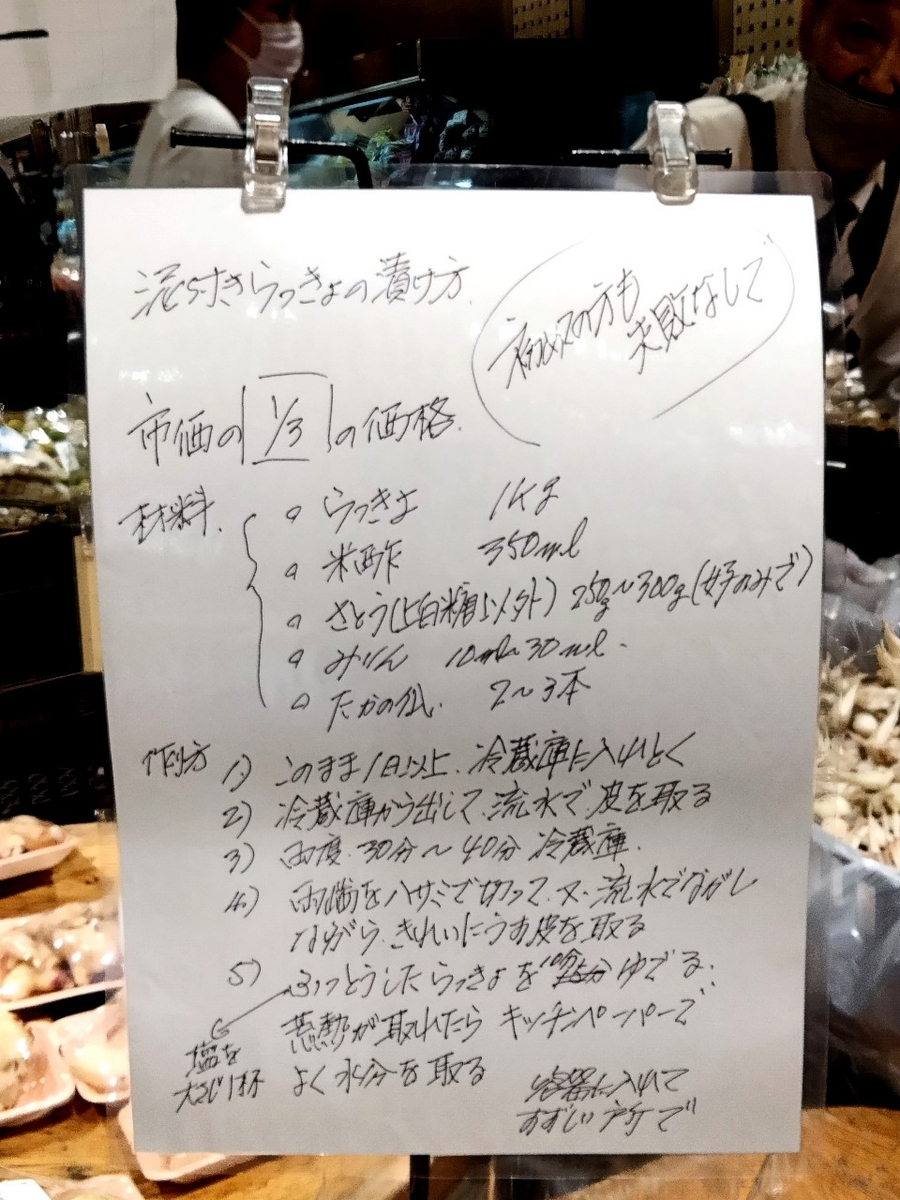 泥付きらっきょの漬け方
初めての方も
失敗なしで
市価の 1/3 の価格
材料
。らっきょ 1kg
。米酢 350ml
。さとう(上白糖以外) 250g~300g(好のみで)
。みりん 10ml~30ml.
。たかの爪 2~3本
作り方
1) このまま1日以上、冷蔵庫に入れとく
2) 冷蔵庫から出して、流水で皮を取る
3) 再度、30分~40分 冷蔵庫.
4) 両端をハサミで切って、又、流水でながし
ながら、きれいにうす皮を取る
5) ふっとうしたらっきょを10秒 ゆでる.
塩を
大さじ1杯
蒸熱が取れたら キッチンペーパーで
よく水分を取る
容器に入れて
すずしい所で